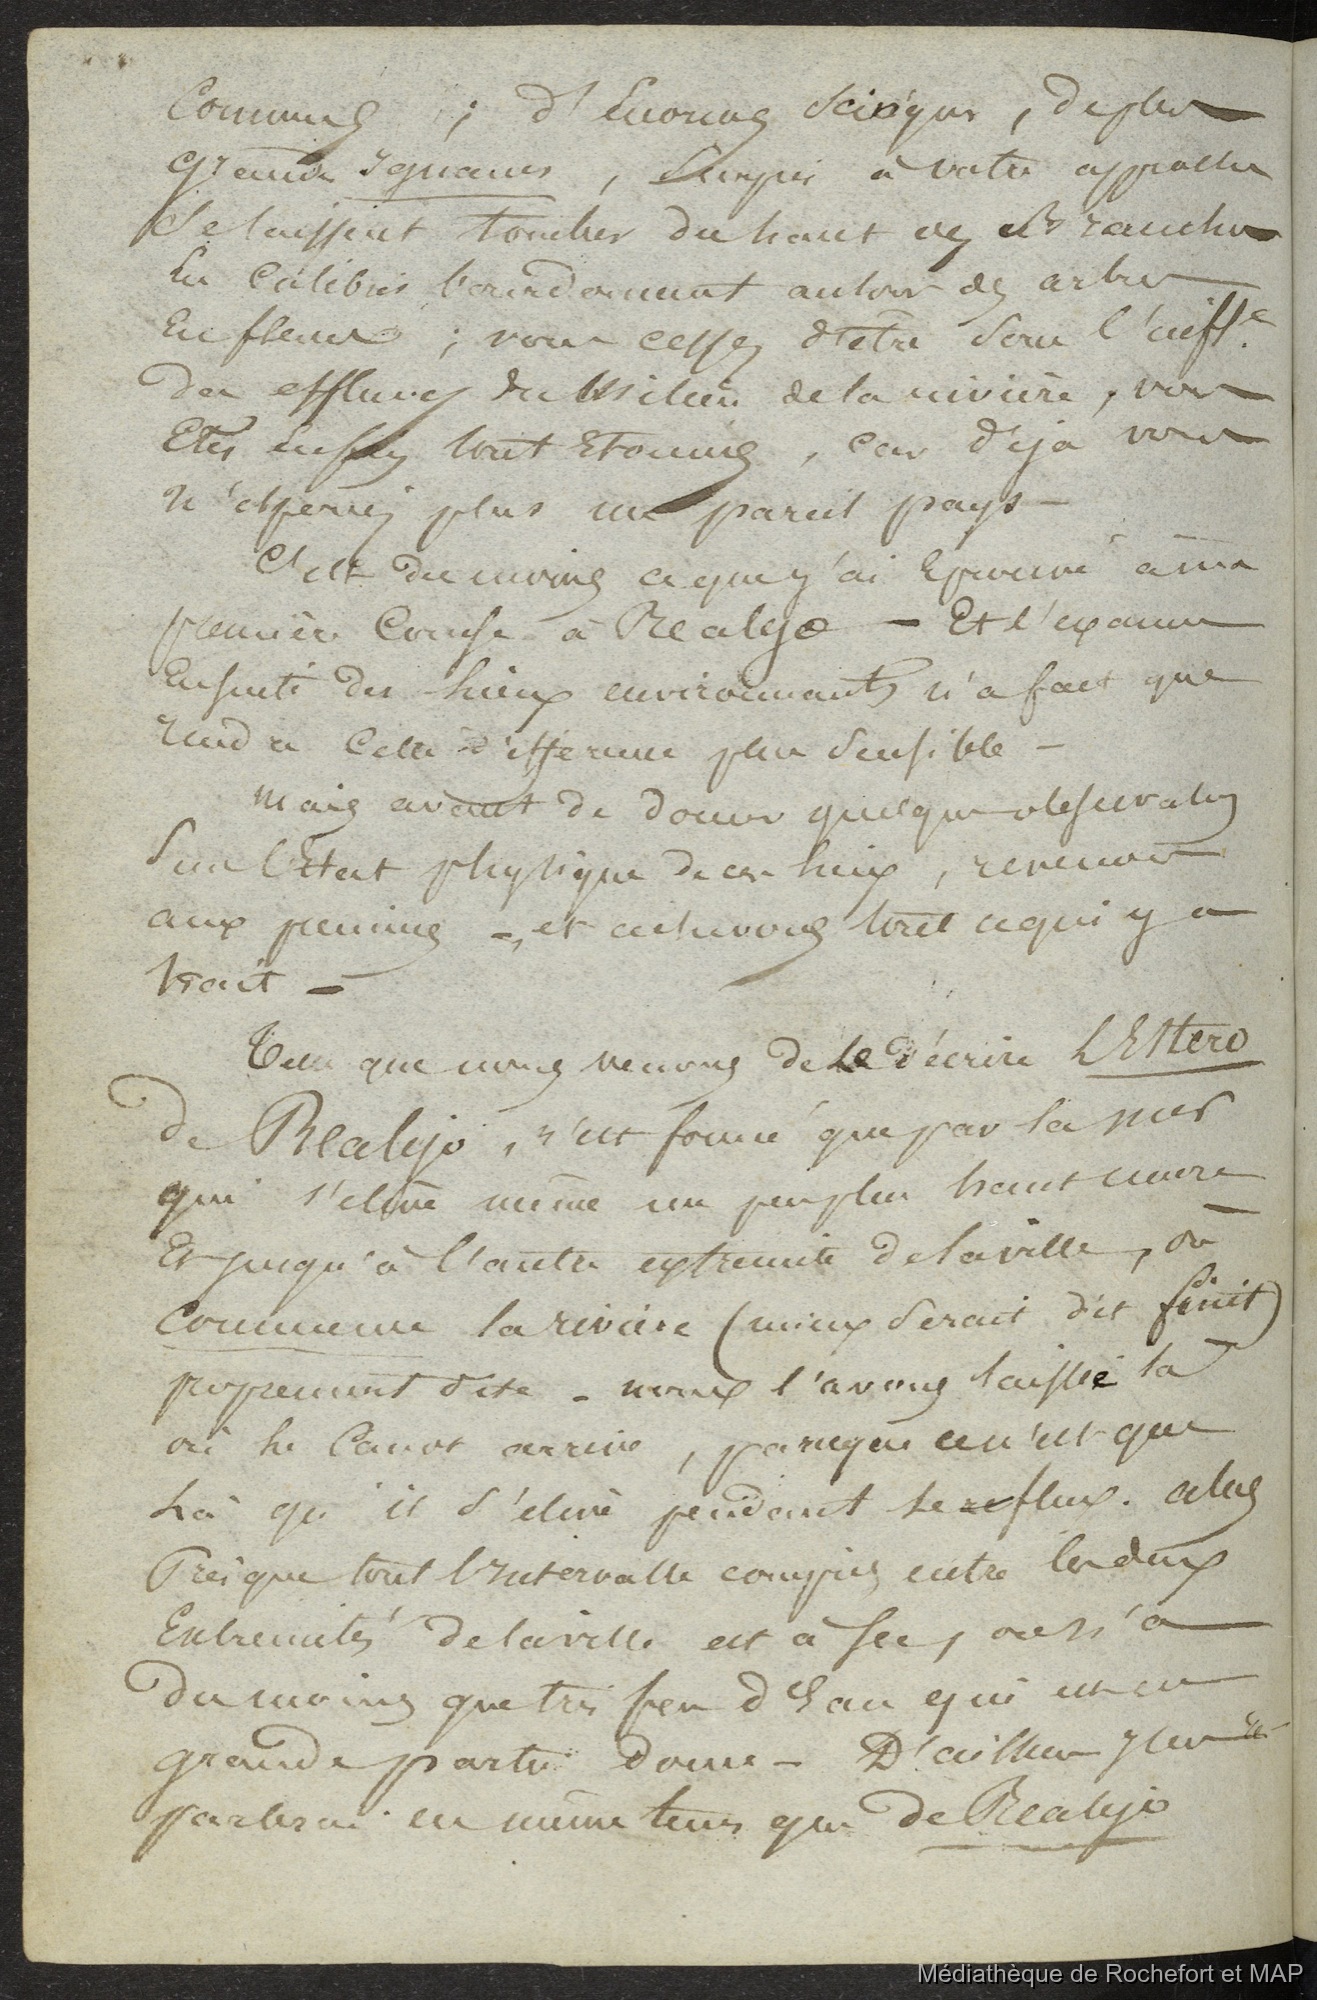 Communs ; d'Enormes Scinques, de plus
grands Iguanes, surpris à votre approche
se laissent tomber du haut des Branches
les Colibris bourdonnent autour des arbres
en fleurs ; vous cessez d'être sous l'infl.ce
des effluves du Milieu de la rivière, vous
Etes enfin tout Etonnés, car déja vous
n'esperiez plus un pareil pays —
C'est du moins ce que j'ai Eprouvé à ma
première Course à Realejo — Et l'examen
Ensuite des lieux environnants n'a fait que
rendre Cette difference plus sensible —
Mais avant de donner quelques observations
sur l'Etat physique de ces lieux, revenons
aux premiers —, et achevons tout ce qui y a
trait —
Telle que nous venons de le décrire L'Estero
de Realejo, n'est formé que par la mer
qui s'élève même un peu plus haut encore
Et jusqu'à l'autre extremité de la ville, où
Commence la rivière (mieux serait dit finit)
proprement dite - nous l'avons laissée là
où le Canot arrive, parceque ce n'est que
là qu'il s'élève pendant le reflux. alors
Presque tout l'Intervalle compris entre les deux
Extremités de la ville est à sec, ou n'a
du moins que très peu d'Eau qui est en
grande partie douce — D'ailleurs j'en
parlerai en même tems que de Realejo
Médiathèque de Rochefort et MAP